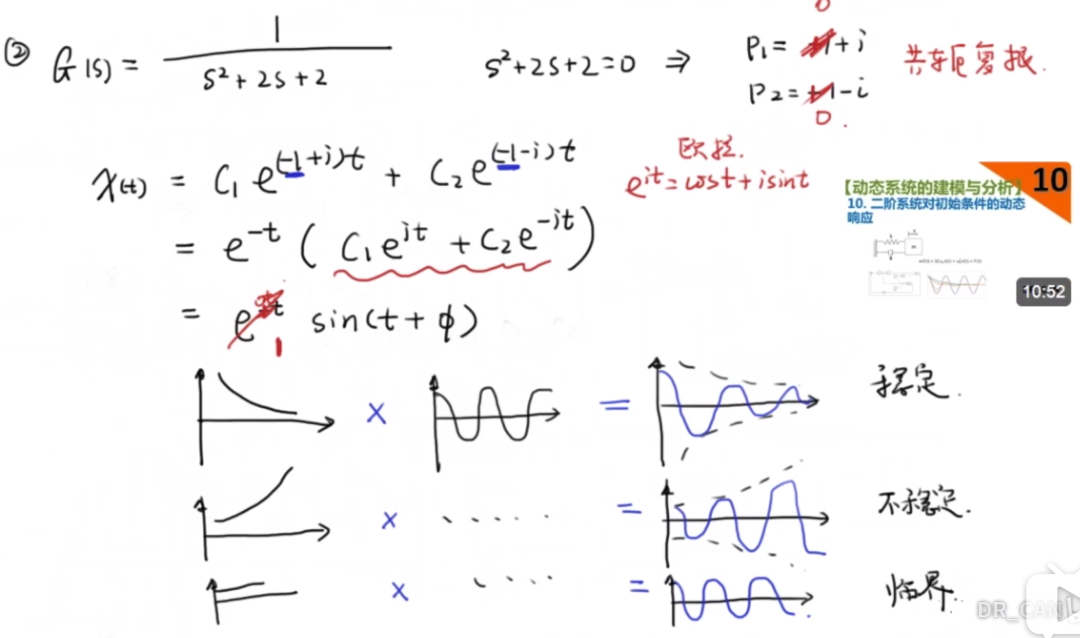 ② G(s) = 1 / (s²+2s+2) s²+2s+2=0 ⇒ P₁= 0+i 共轭复根.
P₂= -i
0.
x(t) = C₁e^(-1+i)t + C₂e^(-1-i)t 欧拉.
e^it=cost+isint
= e^-t ( C₁e^it + C₂e^-it )
= 1 sin(t+φ)
【动态系统的建模与分析】10
10. 二阶系统对初始条件的动态
响应
10:52
× = 稳定.
× ..... = 不稳定.
× .... = 临界.
DR_CAN